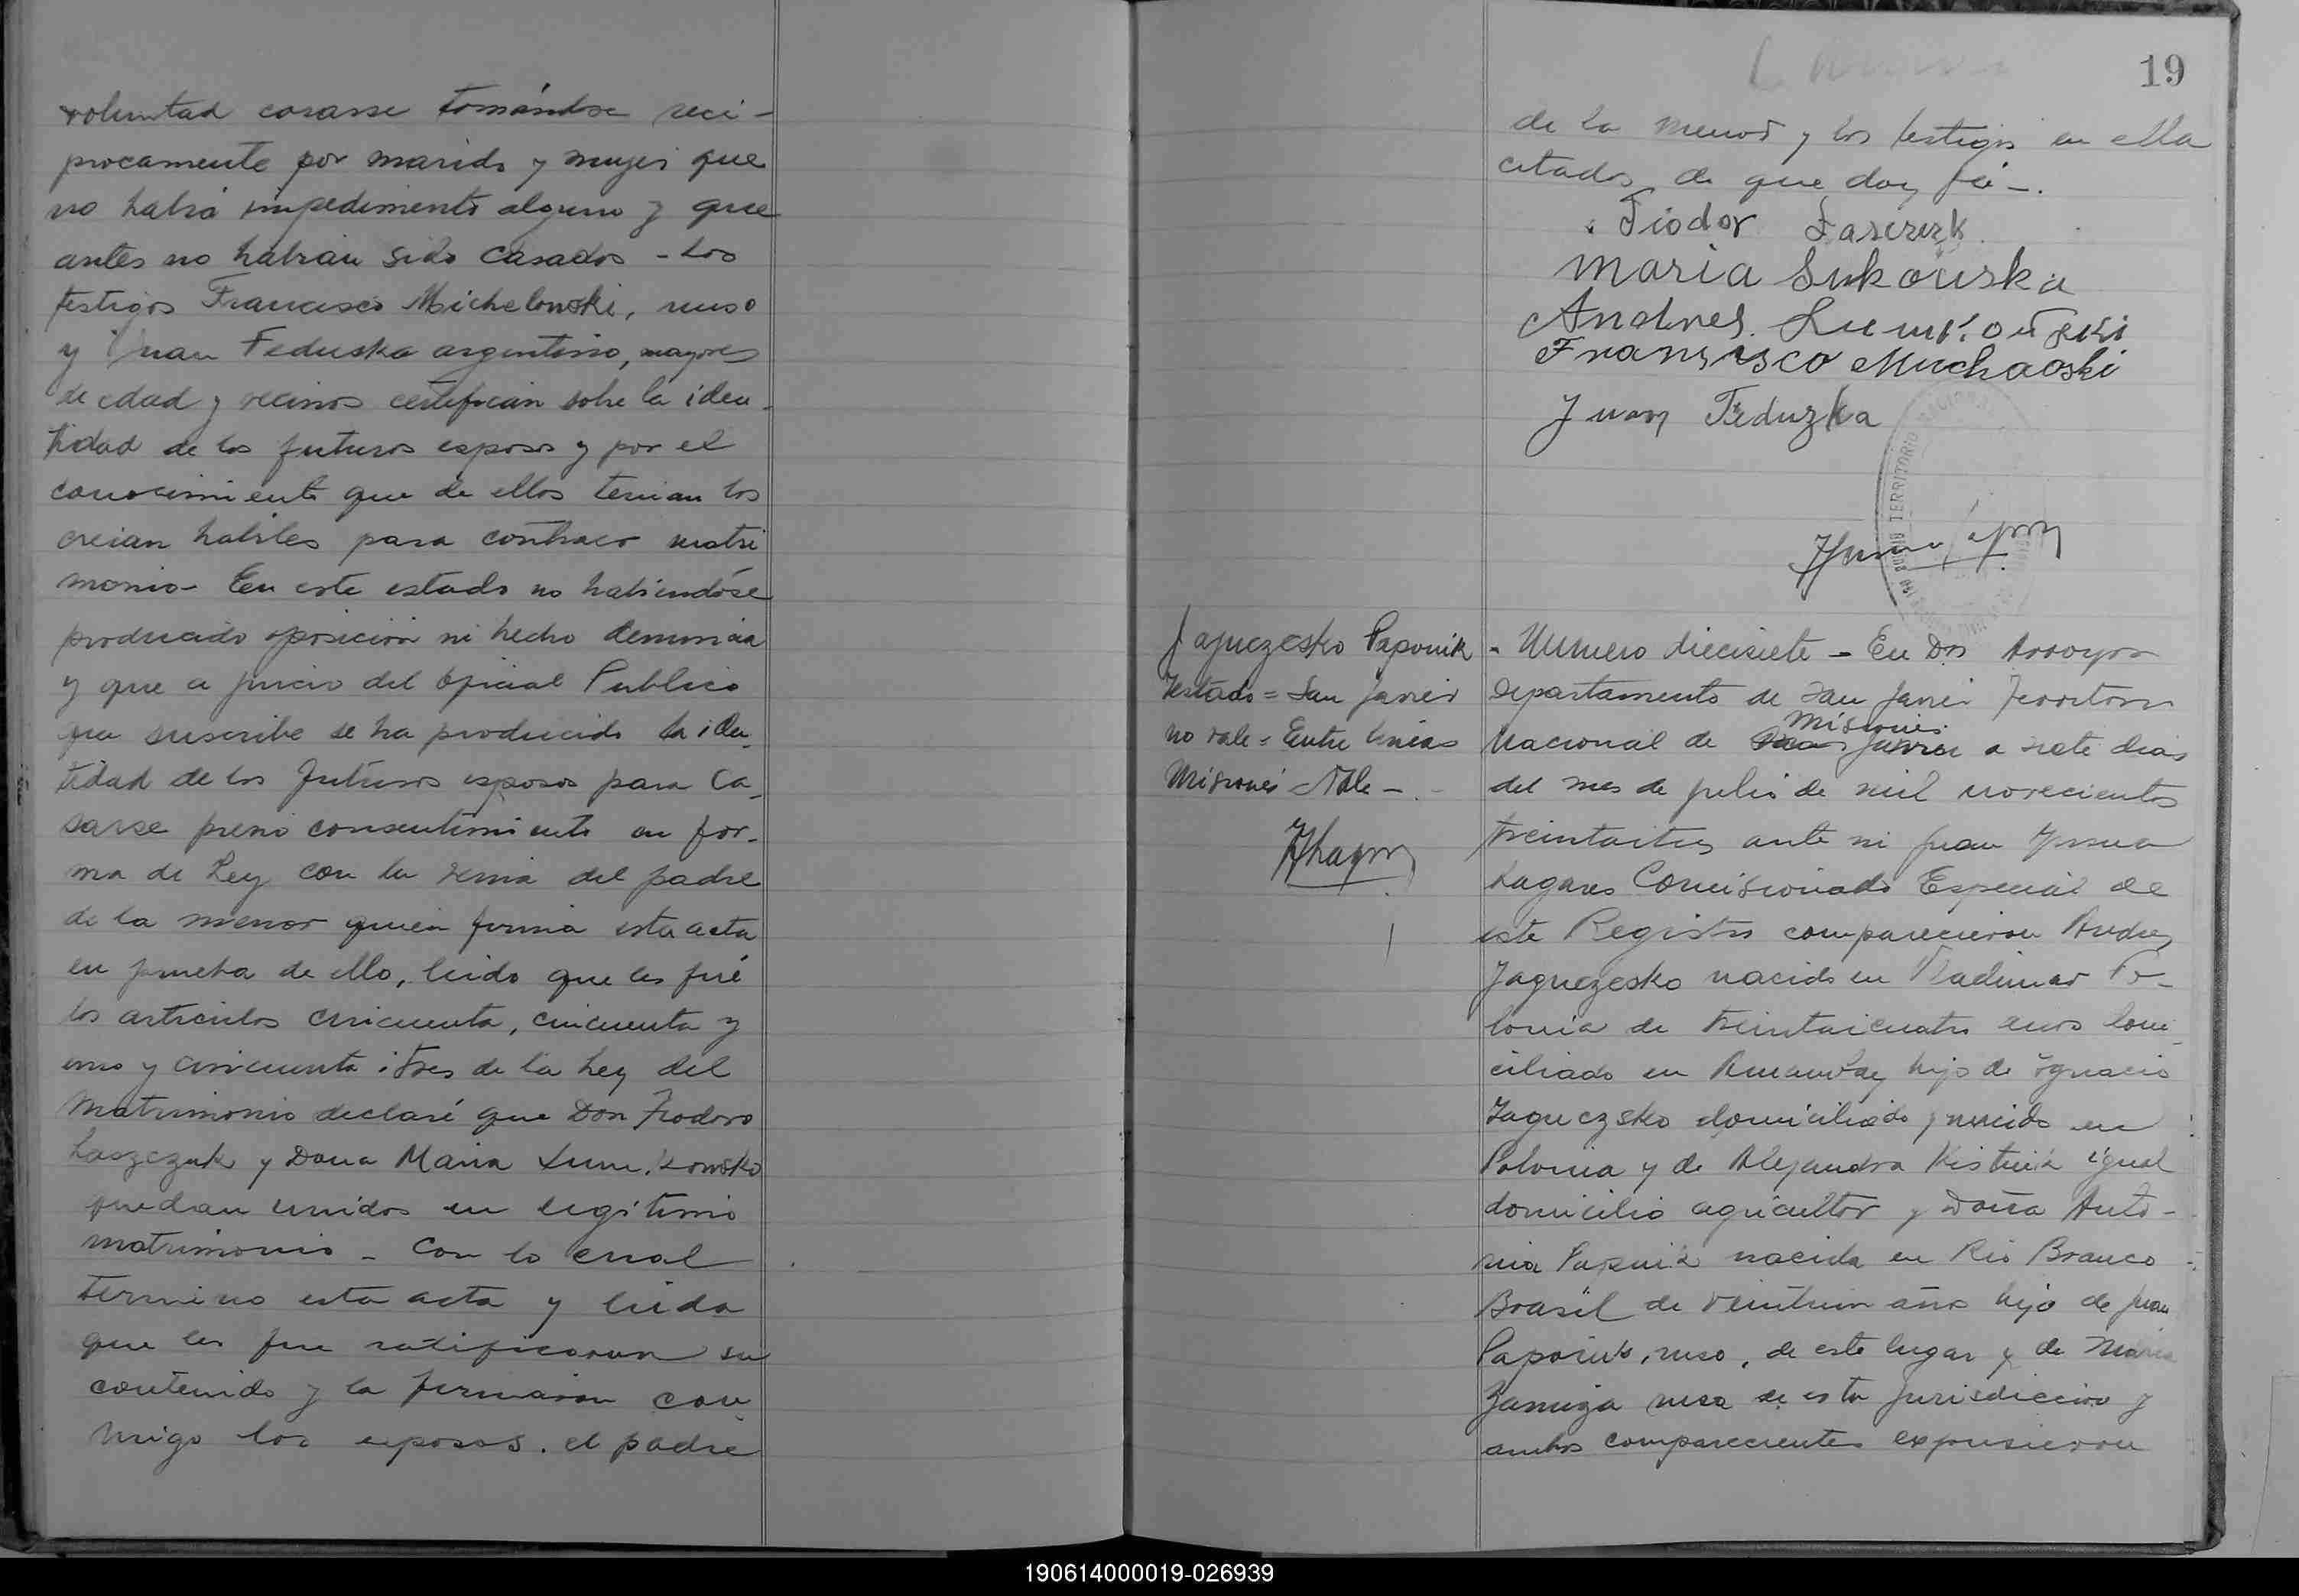 voluntad casarse tomándose reci-
procamente por marido y mujer que
no había impedimento alguno y que
antes no habían sido casados - Los
testigos Francisco Michelowski, ruso
y Juan Feduska argentino, mayores
de edad y vecinos certifican sobre la iden-
tidad de los futuros esposos y por el
conocimiento que de ellos tenian los
creian habiles para contraer matri
monio - En este estado no habiendóse
producido oposición ni hecho denuncia
y que a juicio del Oficial Publico
que suscribe se ha producido la iden-
tidad de los futuros esposos para ca-
sarse previo consentimiento en for-
ma de Ley con la venia del padre
de la menor quien firma esta acta
en prueba de ello, leido que les fué
los articulos cincuenta, cincuenta y
uno y cincuenta i tres de la Ley del
Matrimonio declaré que Don Fiodoro
Laszczuk y Doña Maria
quedan unidos en legítimo
matrimonio - Con lo cual
termino esta acta y leida
que les fue ratificaron su
contenido y la firmaron con
migo los esposos. el padre
19
de la menor y los testigos en ella
citados de que doy fé -.
Fiodor Laszczuk
Maria Sukouska
Andres
Fransisco Muchaoski
Juan Feduzka
TERRITORIO NACIONAL
Jaguczesko Paponik
Testado = San Javier
no vale = Entre lineas
Misiones Vale -. -
- Numero diecisiete - En Dos Arroyos
Departamento de San Javier Territorio
Misiones
Nacional de San Javier a siete dias
del mes de julio de mil novecientos
treintaitres ante mi Juan
Lagares Comisionado Especial de
este Registro comparecieron Andres
Jaguczesko nacido en Vladimar Po-
lonia de treintaicuatro años domi-
ciliado en hijo de Ignacio
Jaguczsko domiciliado y nacido en
Polonia y de Alejandra igual
domicilio agricultor y Doña Anto-
nia Paponik nacida en Rio Branco
Brasil de veintiun año hija de Juan
Paponik, ruso, de este lugar y de Maria
rusa de esta jurisdiccion y
ambos comparecientes expusieron
190614000019-026939